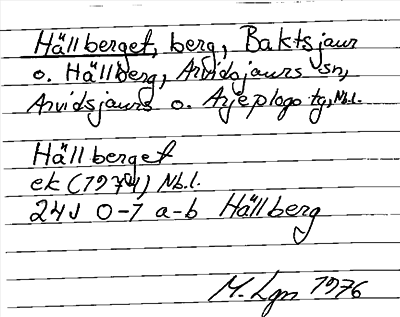 Hällberget, berg, Baktsjaur
o. Hällberg, Arvidsjaurs sn,
Arvidsjaurs o. Arjeplogs tg, Nb.l.
Hällberget
ek (1974) Nb.l.
24J 0-1 a-b Hällberg
M. Lgn 1976